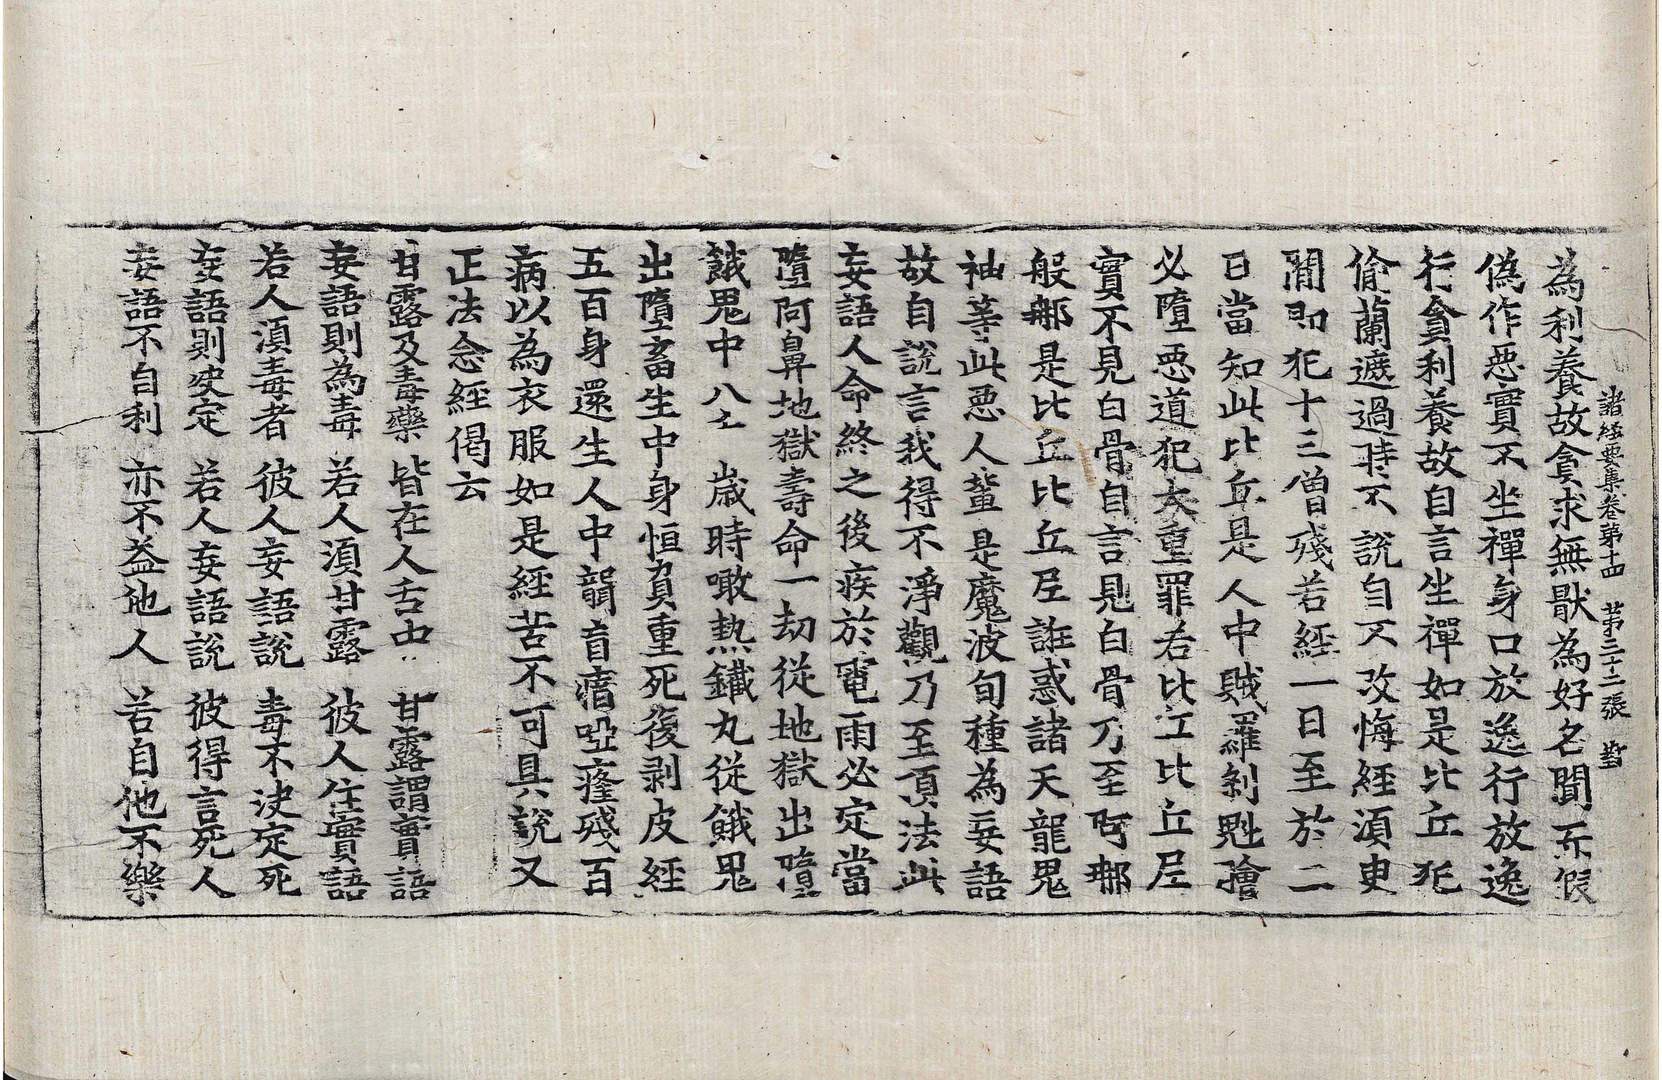 諸經要集卷第十四 第三十二張
為利養故貪求無厭為好名聞而假
偽作惡實不坐禪身口放逸行放逸
行貪利養故自言坐禪如是比丘犯
偷蘭遮過時不說自不改悔經須臾
間即犯十三僧殘若經一日至於二
日當知此比丘是人中賊羅剎魁膾
必墮惡道犯大重罪若比丘比丘尼
實不見白骨自言見白骨乃至阿那
般那是比丘比丘尼誑惑諸天龍鬼
神等此惡人輩是魔波旬種為妄語
故自說言我得不淨觀乃至頂法此
妄語人命終之後疾於電雨必定當
墮阿鼻地獄壽命一劫從地獄出墮
餓鬼中八千歲時噉熱鐵丸從餓鬼
出墮畜生中身恒負重死復剥皮經
五百身還生人中聾盲瘖啞癃殘百
病以為衣服如是經苦不可具說又
正法念經偈云
甘露及毒藥 皆在人舌中 甘露謂實語
妄語則為毒 若人須甘露 彼人住實語
若人須毒者 彼人妄語說 毒不決定死
妄語則決定 若人妄語說 彼得言死人
妄語不自利 亦不益他人 若自他不樂